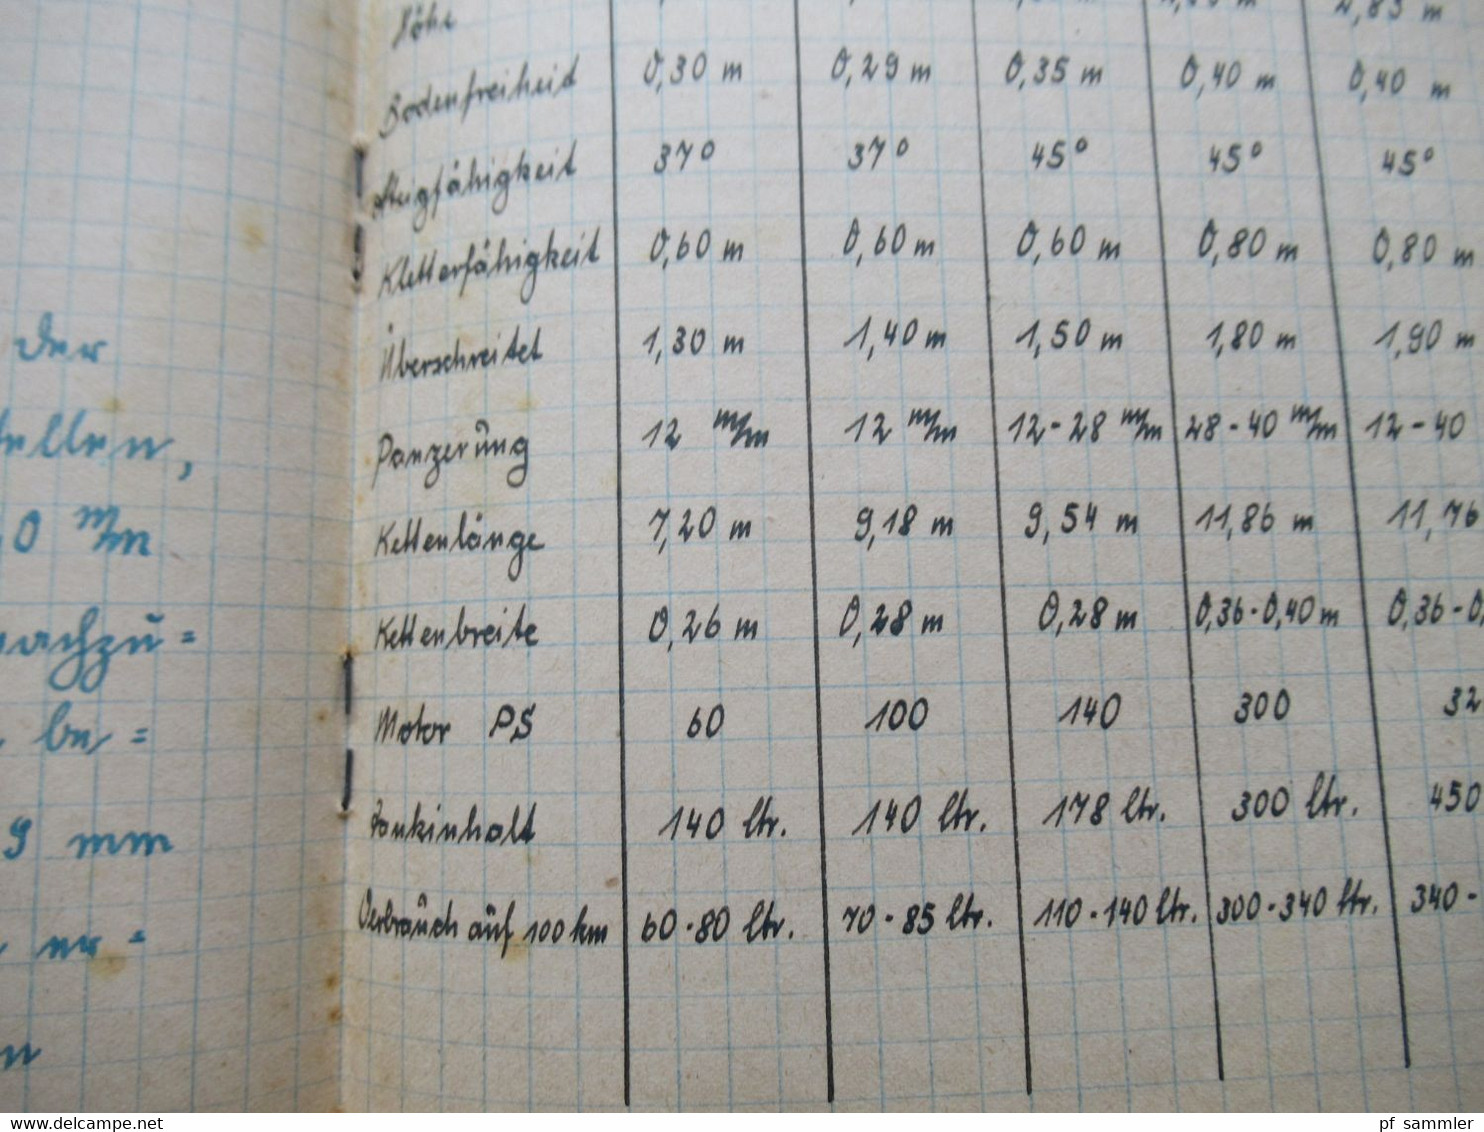 der
ellen,
0 m/m
nachzu=
be=
9 mm
er=
n
Höhe
Bodenfreiheid 0,30 m 0,29 m 0,35 m 0,40 m 0,40 m
Steigfähigkeit 37° 37° 45° 45° 45°
Kletterfähigkeit 0,60 m 0,60 m 0,60 m 0,80 m 0,80 m
Überschreitet 1,30 m 1,40 m 1,50 m 1,80 m 1,90 m
Panzerung 12 m/m 12 m/m 12-28 m/m 28-40 m/m 12-40
Kettenlänge 7,20 m 9,18 m 9,54 m 11,86 m 11,76
Kettenbreite 0,26 m 0,28 m 0,28 m 0,36-0,40 m 0,36-0,
Motor PS 60 100 140 300 32
Tankinhalt 140 ltr. 140 ltr. 178 ltr. 300 ltr. 450
Verbrauch auf 100 km 60-80 ltr. 70-85 ltr. 110-140 ltr. 300-340 ltr. 340-
www.delcampe.net
pf_sammler